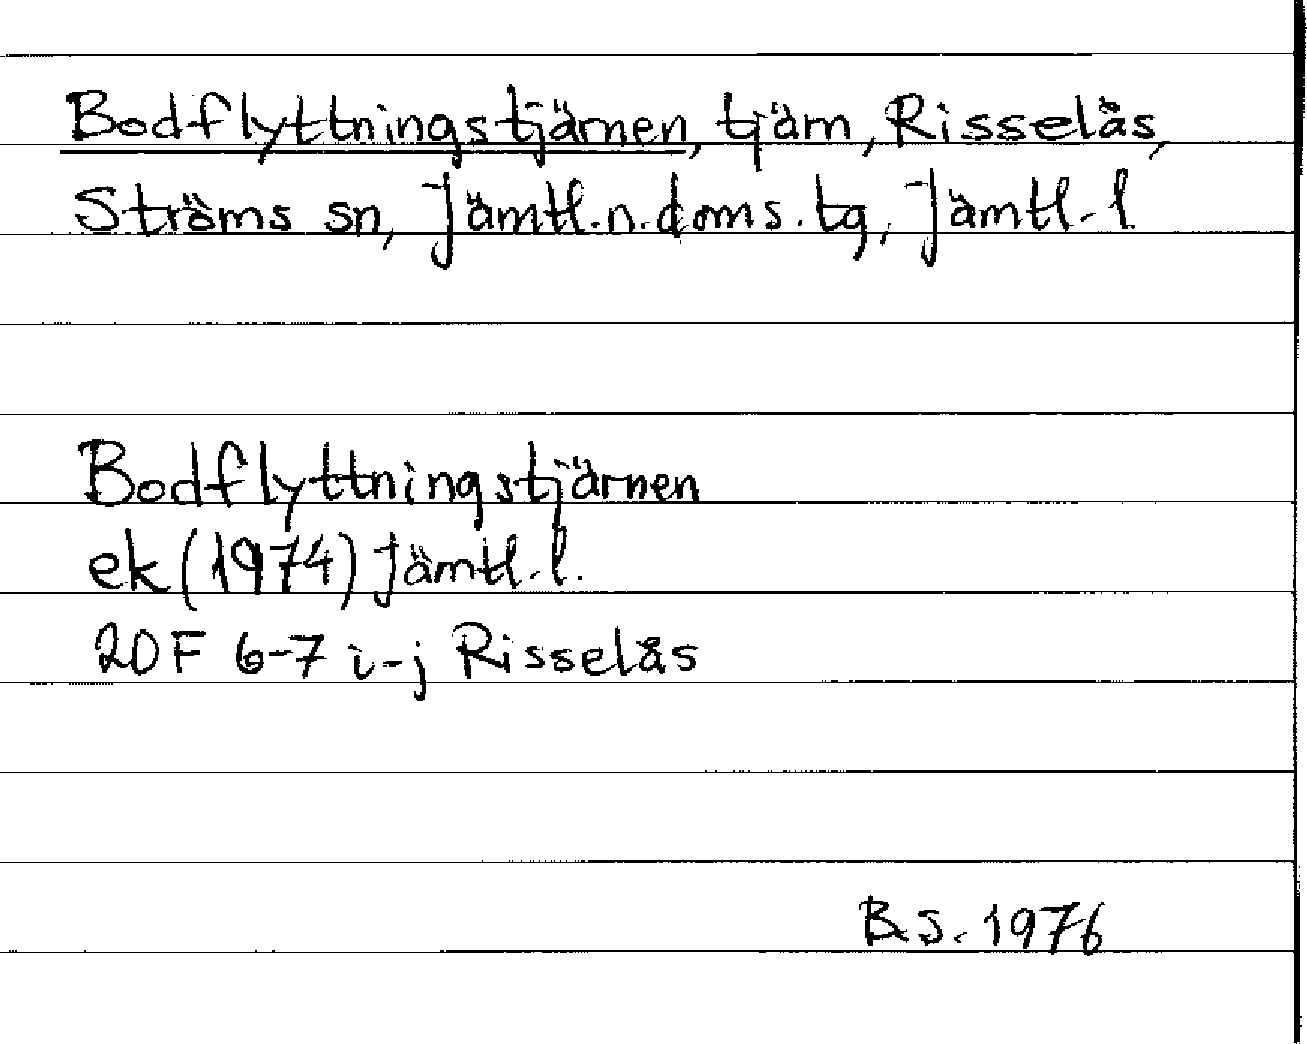 Bodflyttningstjärnen, tjärn, Risselås,
Ströms sn, Jämtl.n.doms.tg, Jämtl.l.
Bodflyttningstjärnen
ek (1974) Jämtl.l.
20F 6-7 i-j Risselås
B.S. 1976